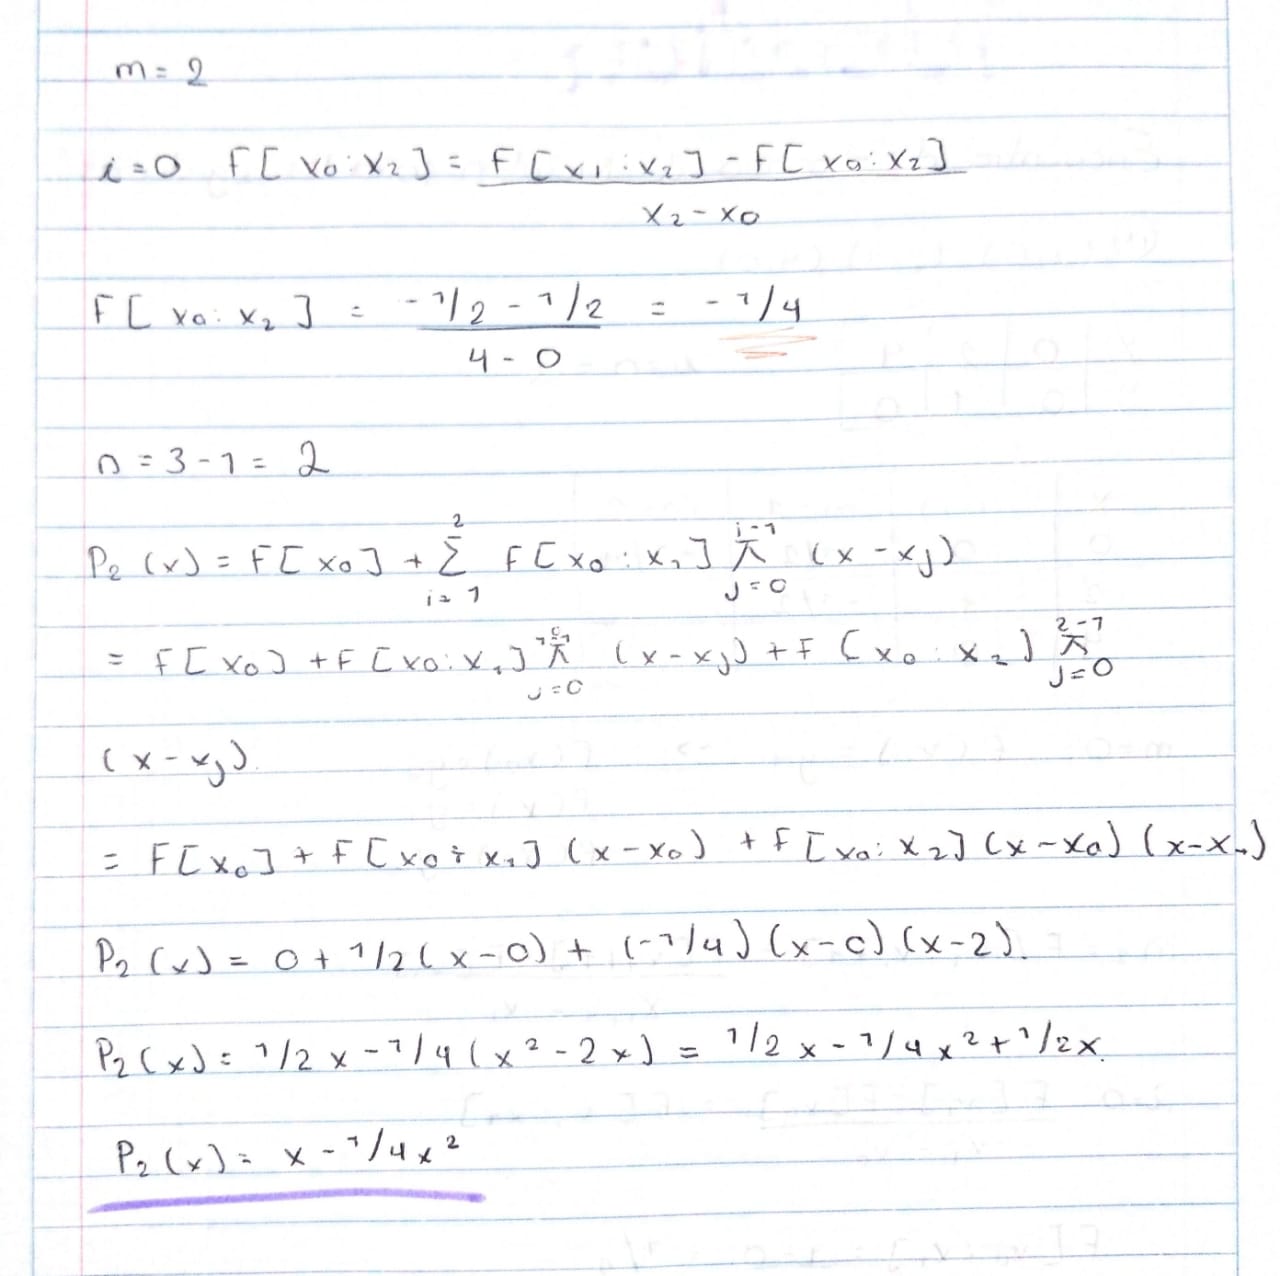 m = 2
i = 0 F[x₀:x₂] = F[x₁:x₂] - F[x₀:x₂]
x₂ - x₀
F[x₀:x₂] = -1/2 - 1/2 = -1/4
4 - 0
n = 3 - 1 = 2
P₂(x) = F[x₀] + Σ F[x₀:x₁] π (x - xⱼ)
2 i-1
i=1 j=0
= F[x₀] + F[x₀:x₁] π (x - xⱼ) + F[x₀:x₂] π
2-1
j=0 j=0
(x - xⱼ).
= F[x₀] + F[x₀:x₁](x - x₀) + F[x₀:x₂](x - x₀)(x - x₁)
P₂(x) = 0 + 1/2(x - 0) + (-1/4)(x - 0)(x - 2).
P₂(x) = 1/2x - 1/4(x² - 2x) = 1/2x - 1/4x² + 1/2x.
P₂(x) = x - 1/4x²